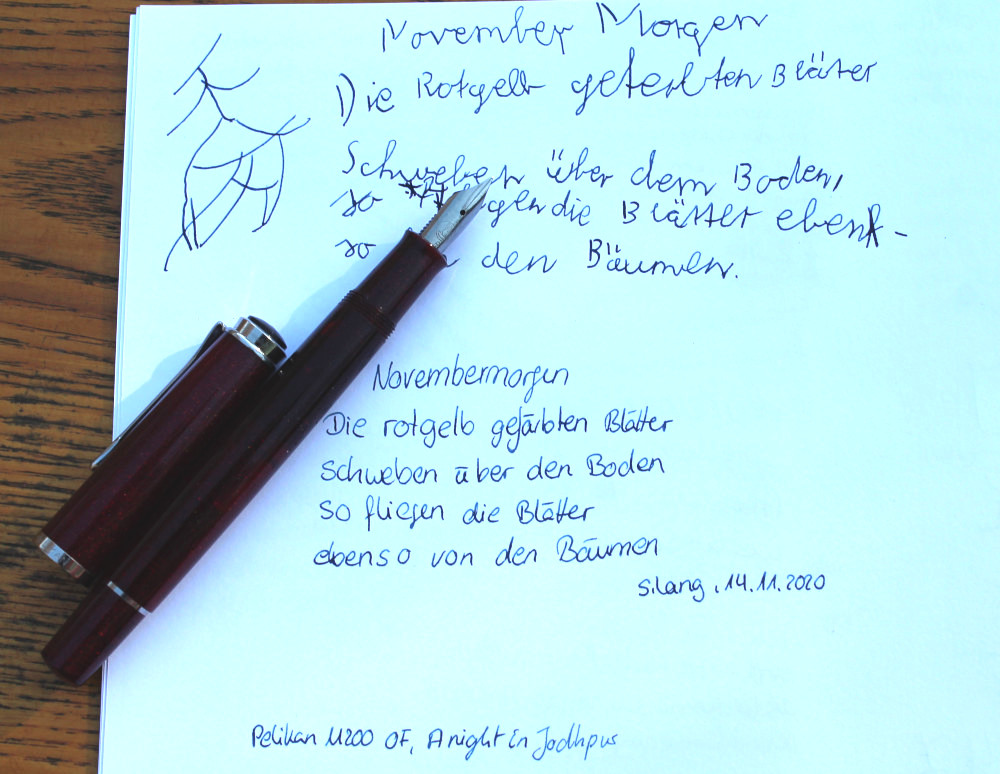 November Morgen
Die Rotgelb geferbten Blätter
Schweben über dem Boden,
so gen die Blätter eben-
so den Bäumen.
Novembermorgen
Die rotgelb gefärbten Blätter
schweben über den Boden
so fliegen die Blätter
ebenso von den Bäumen
S.Lang, 14.11.2020
Pelikan M200 OF, A night in Jodhpur